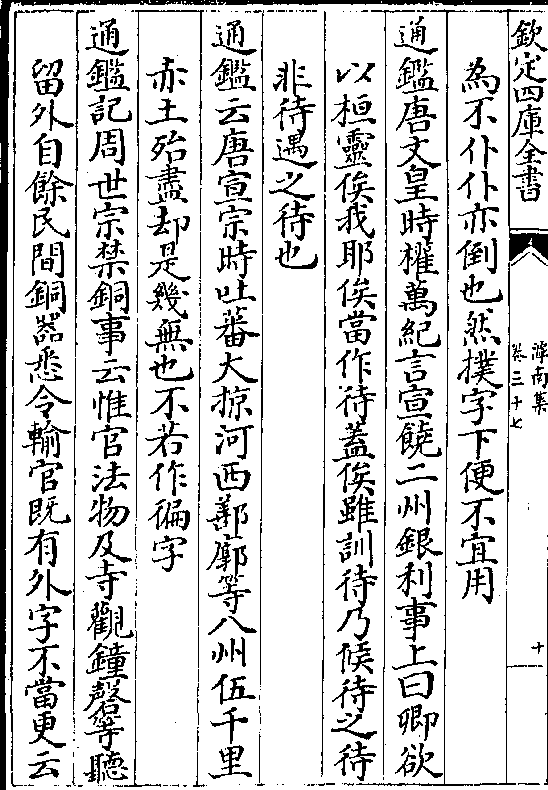 欽定四庫全書
滹南集
卷三十七
十
為不仆仆亦倒也然撲字下便不宜用
通鑑唐文皇時權萬紀言宣饒二州銀利事上曰卿欲
以桓靈俟我耶俟當作待蓋俟雖訓待乃候待之待
非待遇之待也
通鑑云唐宣宗時吐蕃大掠河西鄯廓等八州伍千里
赤土殆盡却是幾無也不若作徧字
通鑑記周世宗禁銅事云惟官法物及寺觀鐘磬等聽
留外自餘民間銅器悉令輸官既有外字不當更云